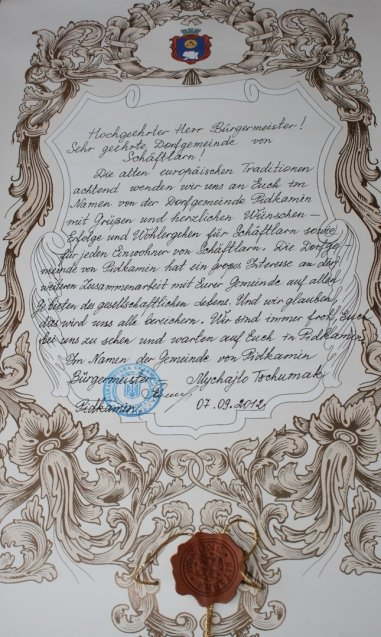 Hochgeehrter Herr Bürgermeister!
Sehr geehrte Dorfgemeinde von
Schäftlarn!
Die alten europäischen Traditionen
achtend wenden wir uns an Euch im
Namen von der Dorfgemeinde Pidkamin
mit Grüßen und herzlichen Wünschen –
Erfolge und Wohlergehen für Schäftlarn sowie
für jeden Einwohner von Schäftlarn. Die Dorfge
meinde von Pidkamin hat ein großes Interesse an der
weiteren Zusammenarbeit mit Eurer Gemeinde auf allen
Gebieten des gesellschaftlichen Lebens. Und wir glauben,
das wird uns alle bereichern. Wir sind immer froh, Euch
bei uns zu sehen und warten auf Euch in Pidkamin.
Im Namen der Gemeinde von Pidkamin
Bürgermeister Mychajlo Tschumak
Pidkamin, 07.09.2012